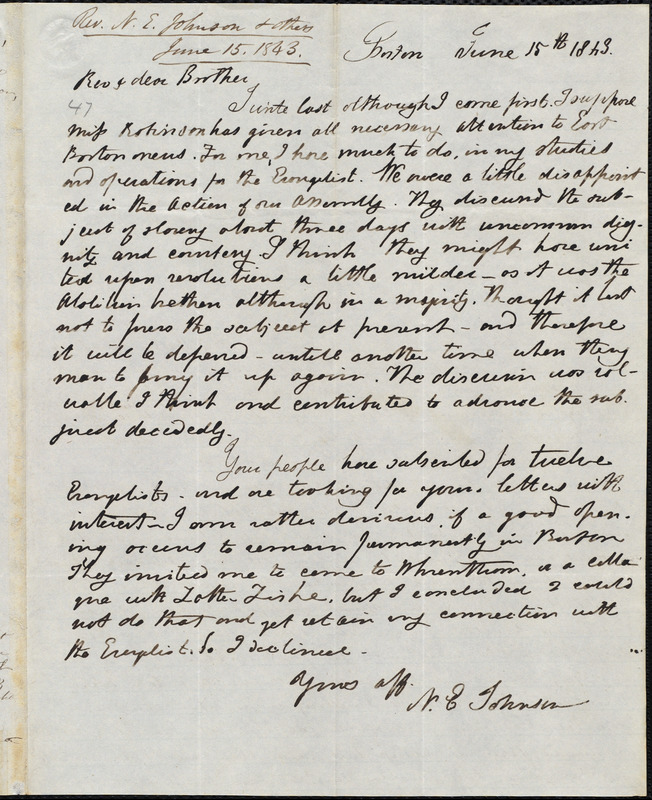 Rev. N. E. Johnson & others
June 15. 1843.
Boston June 15th 1843.
Rev & dear Brother
47
I write last although I come first. I suppose
Miss Robinson has given all necessary attention to East
Boston news. For me, I have much to do, in my studies
and operations for the Evangelist. We were a little disappoint
ed in the action of our Assembly. They discussed the sub-
ject of slavery about three days with uncommon dig-
nity and courtesy I think they might have uni
ted upon resolutions a little milder - as it was the
Abolition brethren although in a majority, thought it best
not to press the subject at present - and therefore
it will be deferred - untill another time when they
mean to bring it up again. The discussion was val-
uable I think and contributed to advance the sub.
ject decidedly.
Your people have subscribed for twelve
Evangelists - and are looking for your letters with
interest - I am rather desirous, if a good open-
ing occurs to remain permanently in Boston
They invited me to come to Wrentham, as a collea
gue with Father Fiske, but I concluded I could
not do that and yet retain my connection with
the Evanglist. So I declined -
Yours aff.
N. E Johnson